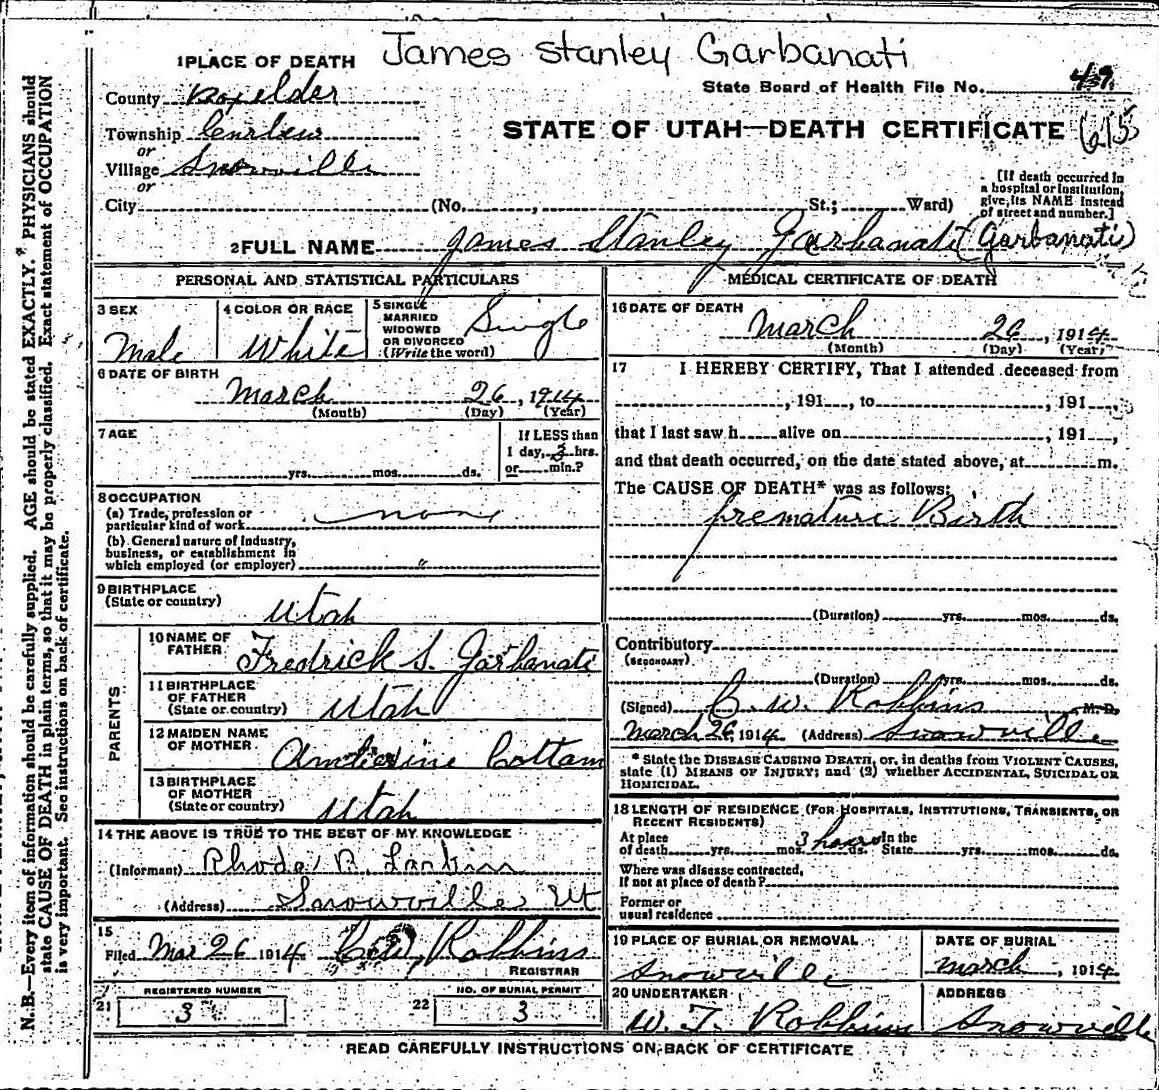 James Stanley Garbanati
1 PLACE OF DEATH
State Board of Health File No. 49
County Boxelder
STATE OF UTAH—DEATH CERTIFICATE 615
Township Curlew
or
Village Snowville
or
City (No. , St.; Ward)
[If death occurred in
a hospital or institution,
give its NAME instead
of street and number.]
2 FULL NAME James Stanley Garbanati (Garbanati)
PERSONAL AND STATISTICAL PARTICULARS
3 SEX
Male
4 COLOR OR RACE
White
5 SINGLE
MARRIED
WIDOWED
OR DIVORCED
(Write the word)
Single
6 DATE OF BIRTH
March 26, 1914
(Month) (Day) (Year)
7 AGE
yrs. mos. ds.
If LESS than
1 day, 3 hrs.
or min.?
8 OCCUPATION
(a) Trade, profession or
particular kind of work none
(b) General nature of industry,
business, or establishment in
which employed (or employer) "
9 BIRTHPLACE
(State or country)
Utah
PARENTS
10 NAME OF
FATHER
Fredrick S. Garbanati
11 BIRTHPLACE
OF FATHER
(State or country)
Utah
12 MAIDEN NAME
OF MOTHER
Cottam
13 BIRTHPLACE
OF MOTHER
(State or country)
Utah
14 THE ABOVE IS TRUE TO THE BEST OF MY KNOWLEDGE
(Informant) Rhoda R. Larkin
(Address) Snowville Ut
15
Filed Mar 26 1914 C. W. Robbins
REGISTRAR
REGISTERED NUMBER
21 3
NO. OF BURIAL PERMIT
22 3
MEDICAL CERTIFICATE OF DEATH
16 DATE OF DEATH
March 26, 1914
(Month) (Day) (Year)
17 I HEREBY CERTIFY, That I attended deceased from
, 191 , to , 191 ,
that I last saw h alive on , 191 ,
and that death occurred, on the date stated above, at m.
The CAUSE OF DEATH* was as follows:
premature Birth
(Duration) yrs. mos. ds.
Contributory
(SECONDARY)
(Duration) yrs. mos. ds.
(Signed) C. W. Robbins M. D.
March 26, 1914 (Address) Snowville
* State the DISEASE CAUSING DEATH, or, in deaths from VIOLENT CAUSES,
state (1) MEANS OF INJURY; and (2) whether ACCIDENTAL, SUICIDAL OR
HOMICIDAL.
18 LENGTH OF RESIDENCE (FOR HOSPITALS, INSTITUTIONS, TRANSIENTS, OR
RECENT RESIDENTS)
At place
of death yrs. mos. 3 hours ds. In the
State yrs. mos. ds.
Where was disease contracted,
if not at place of death?
Former or
usual residence
19 PLACE OF BURIAL OR REMOVAL
Snowville
DATE OF BURIAL
March , 1914
20 UNDERTAKER
W. T. Robbins
ADDRESS
Snowville
READ CAREFULLY INSTRUCTIONS ON BACK OF CERTIFICATE
N.B.—Every item of information should be carefully supplied. AGE should be stated EXACTLY. PHYSICIANS should
state CAUSE OF DEATH in plain terms, so that it may be properly classified. Exact statement of OCCUPATION
is very important. See instructions on back of certificate.